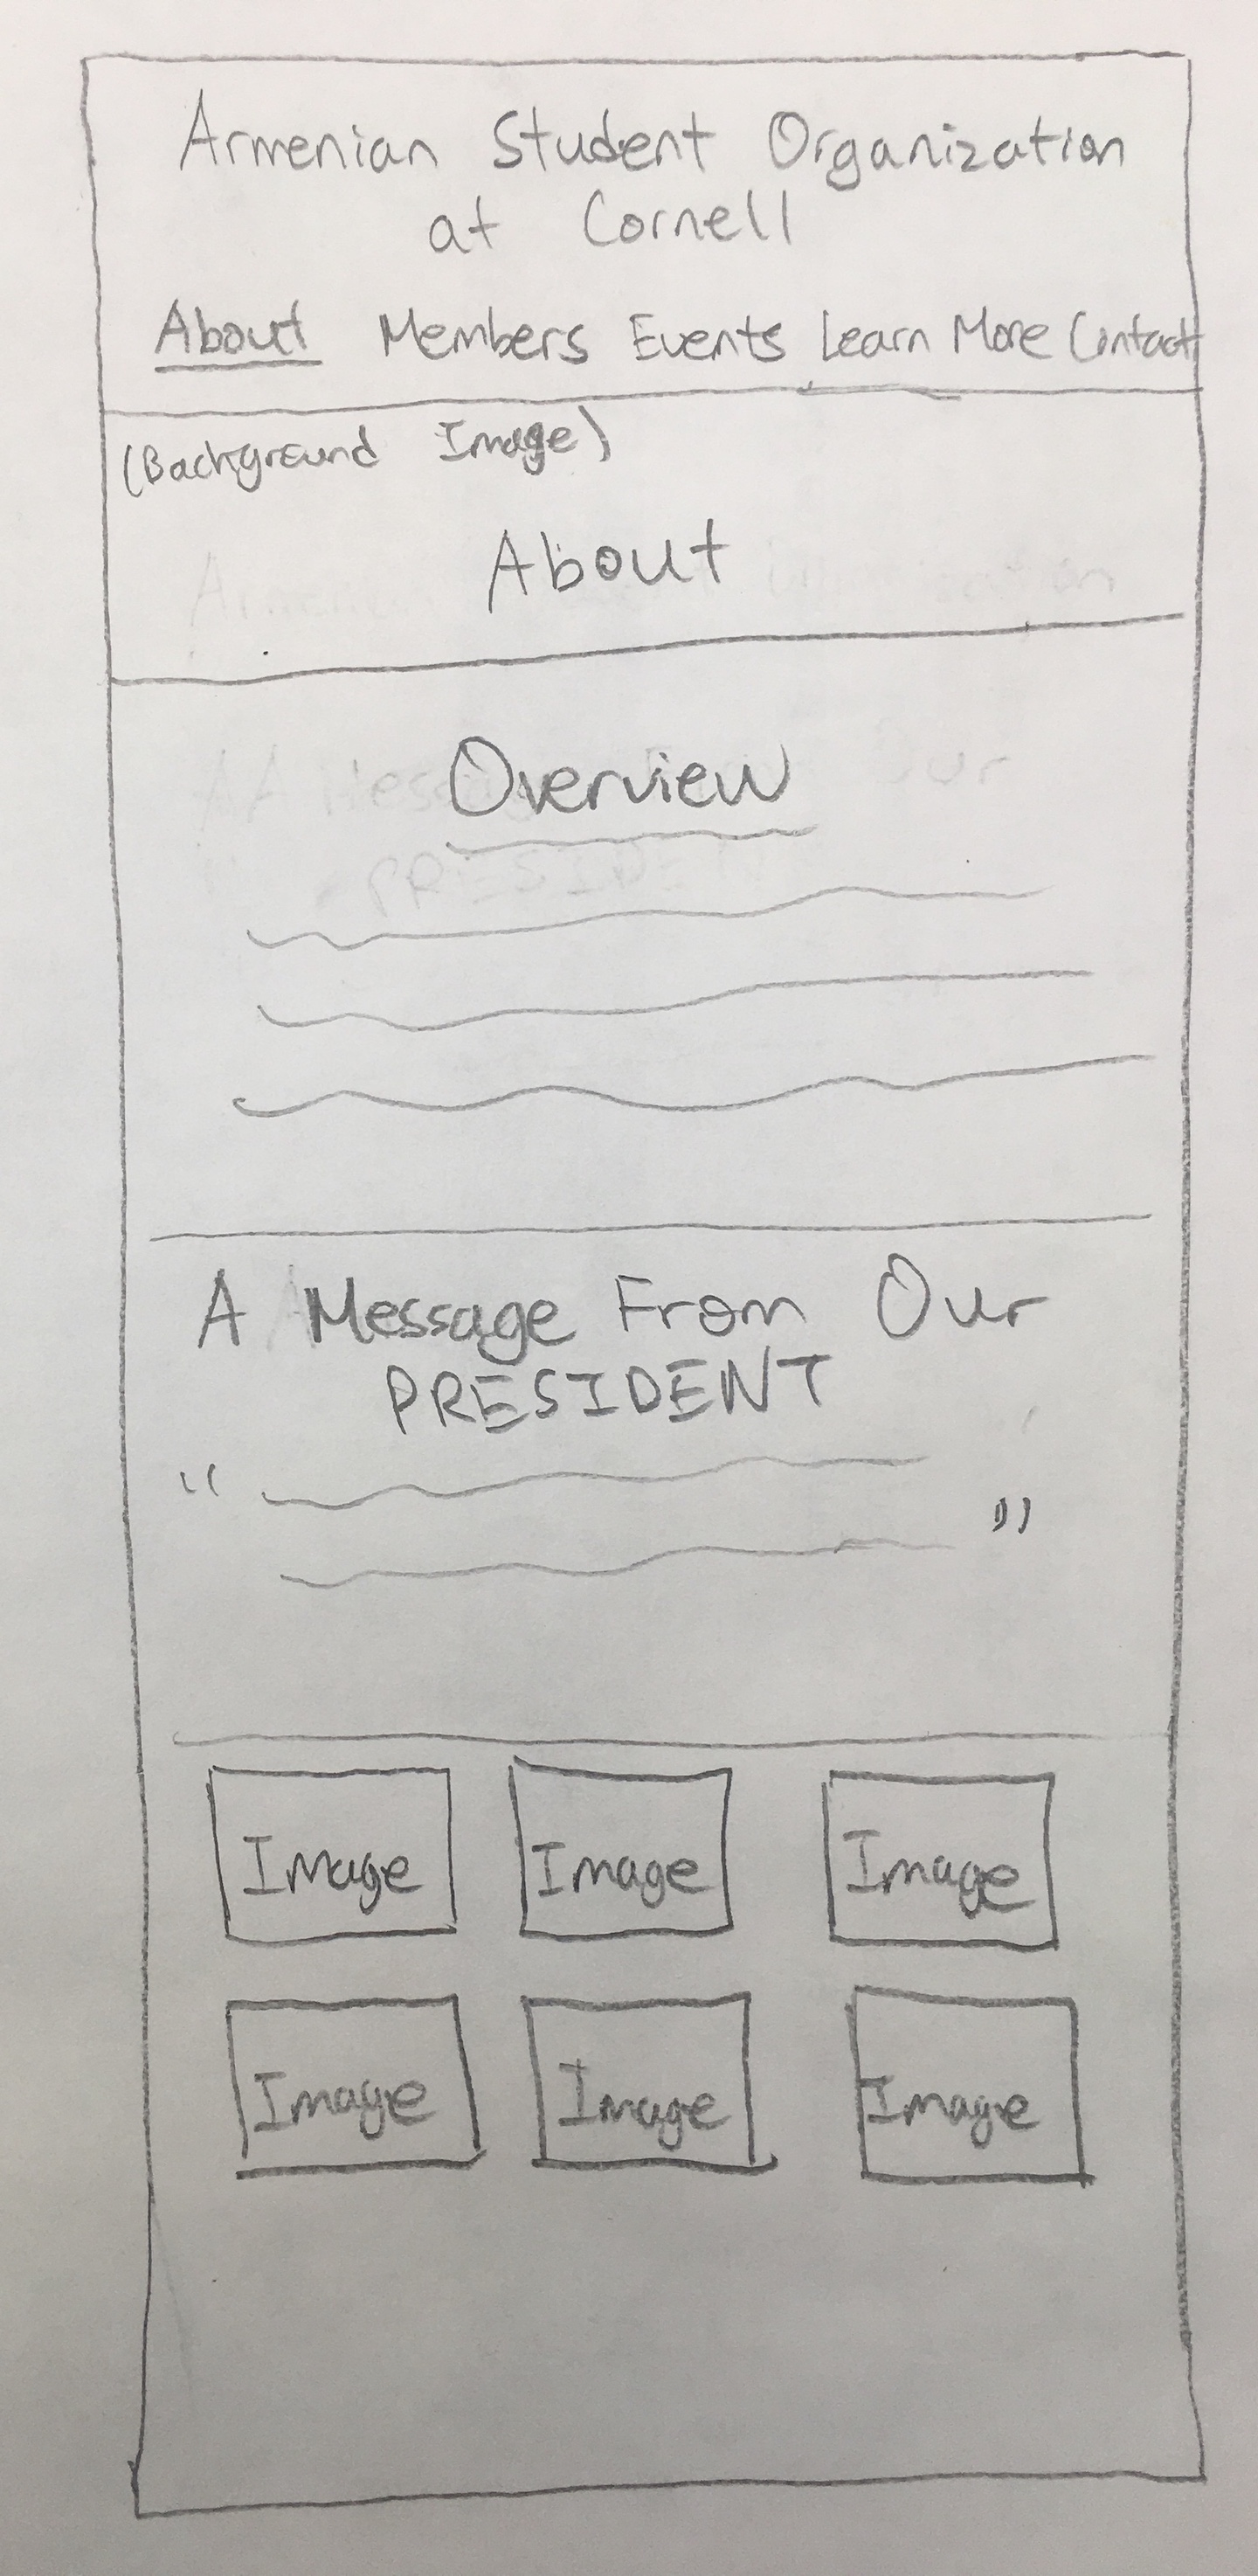 Armenian Student Organization
at Cornell
About Members Events Learn More Contact
(Background Image)
About
Overview
A Message From Our
PRESIDENT
“ ”
Image Image Image
Image Image Image